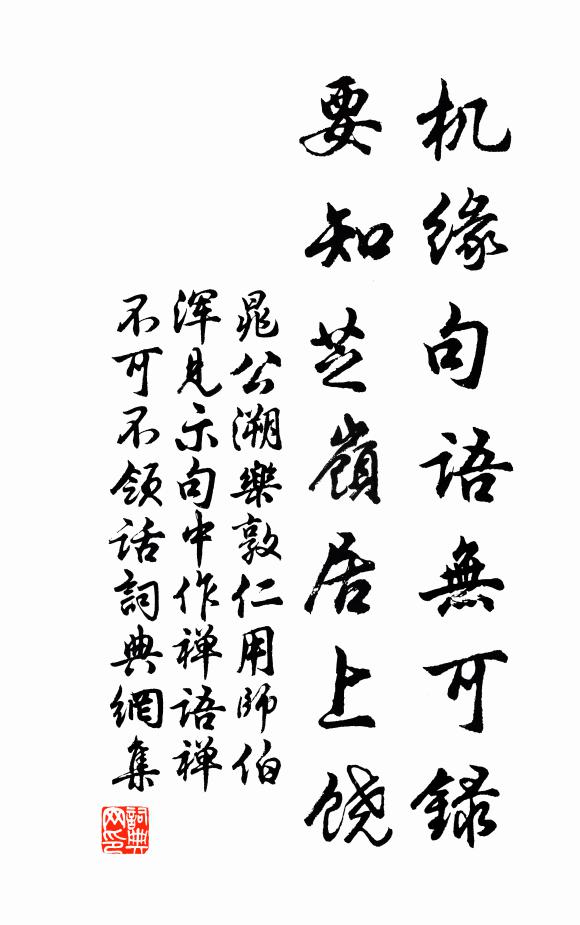 机缘句語無可録
要知芝嶺居上饶
晁公溯樂敦仁用師伯
浑見示句中作禅語禅
不可不领话詞典網集
詞典
网印